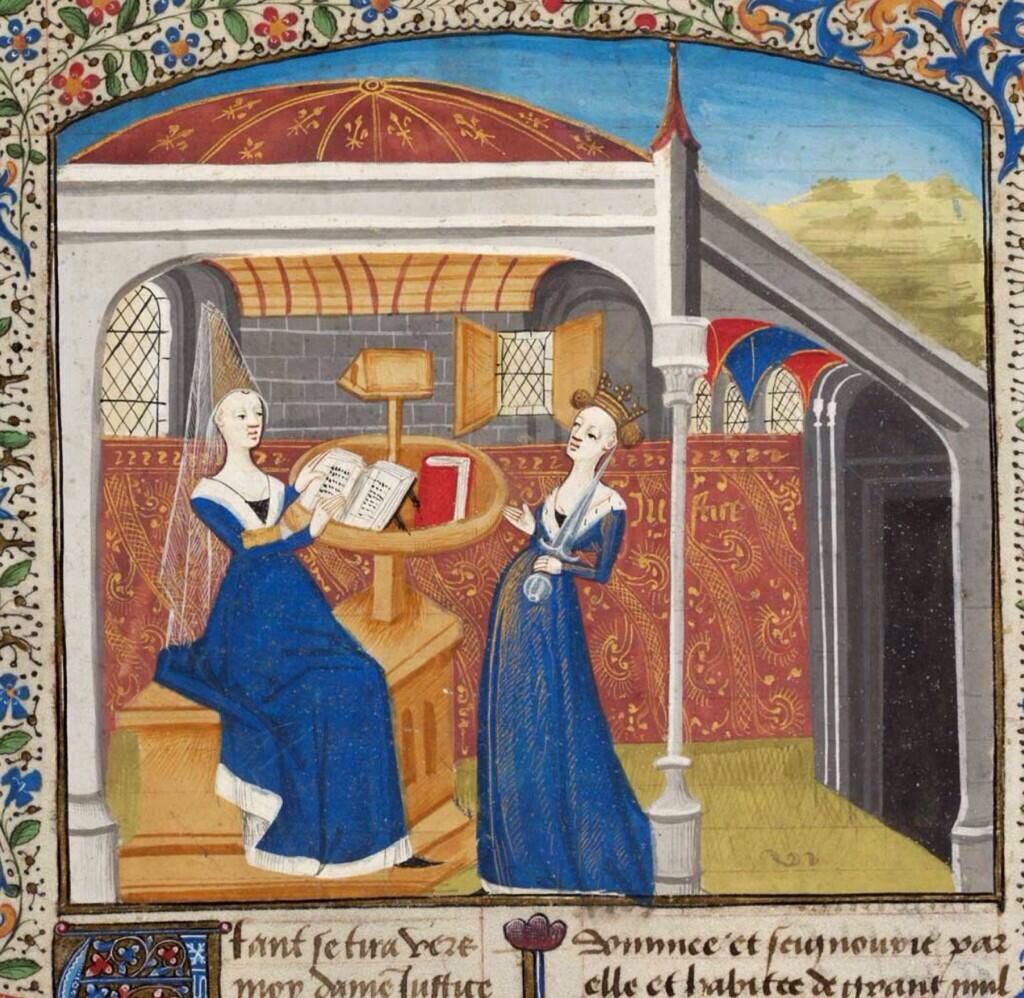 Justice
Atant se tira vers
moy dame Justice
Dominee et seignourie par
elle et habitee de grant mul